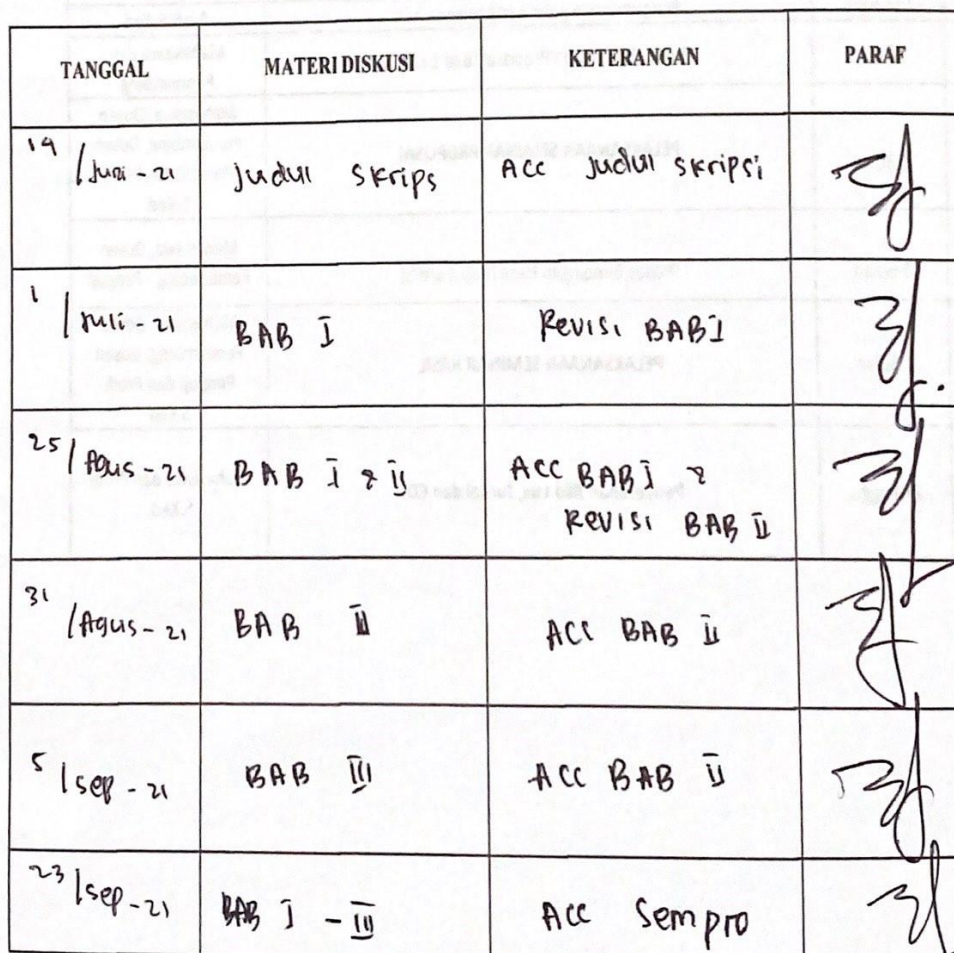 TANGGAL MATERI DISKUSI KETERANGAN PARAF
19/Juni-21 Judul Skrips ACC Judul Skripsi
1/Juli-21 BAB I Revisi BAB I
25/Agus-21 BAB I & II ACC BAB I &
Revisi BAB II
31/Agus-21 BAB II ACC BAB II
5/Sep-21 BAB III ACC BAB II
23/Sep-21 BAB I - III ACC Sempro